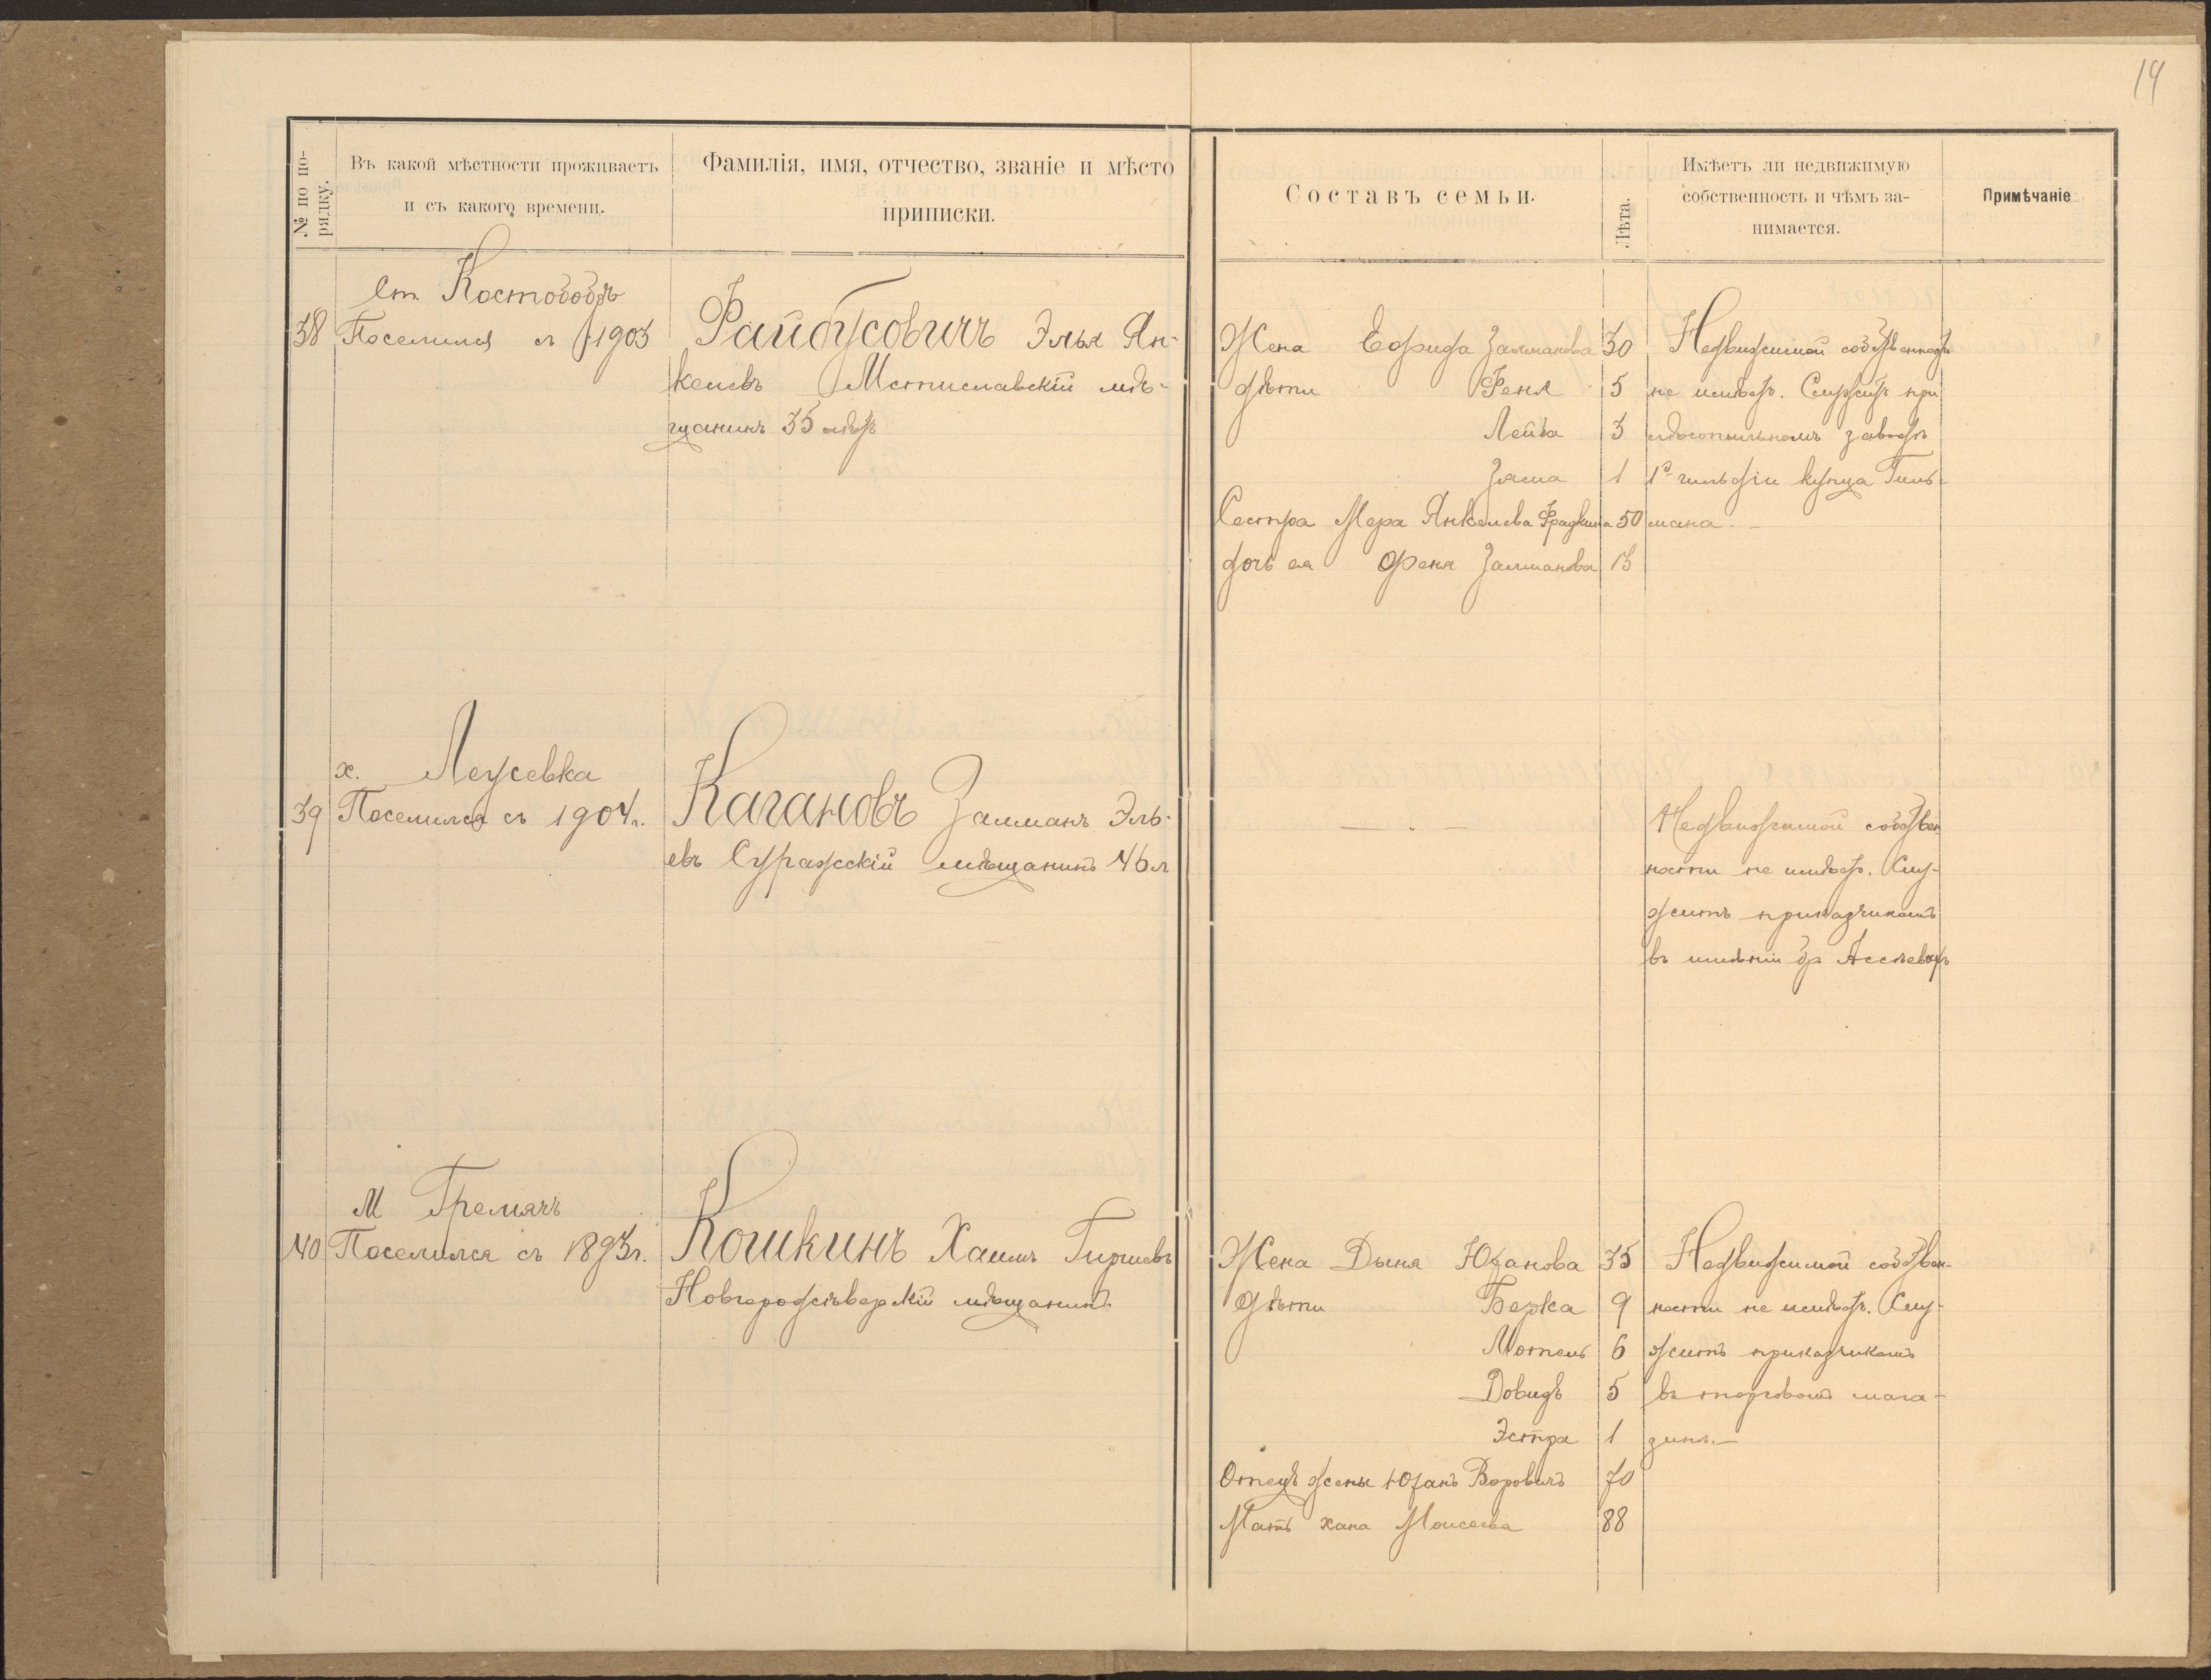 19
№ по по-
рядку.
Въ какой мѣстности проживаетъ
и съ какого времени.
Фамилія, имя, отчество, званіе и мѣсто
приписки.
Составъ семьи.
Лѣта.
Имѣетъ ли недвижимую
собственность и чѣмъ за-
нимается.
Примѣчаніе
Ст. Костобобръ
38 Поселился съ 1903
Файбусовичъ Элья Ян-
келевъ Мстиславскій мѣ-
щанинъ 35 лѣтъ
Жена Залманова 30
дѣти Феня 5
Лейба 3
Зяма 1
Сестра Мера Янкелева Фрадкина 50
дочь ея Феня Залманова 13
Недвижимой собственности
не имѣетъ. Служитъ при
лѣсопильномъ заводѣ
1й гильдіи купца Гиль-
мана. —
х. Леусевка
39 Поселился съ 1904 г.
Кагановъ Залманъ Эль-
евъ Суражскій мѣщанинъ 46 л
— . —
Недвижимой собствен
ности не имѣетъ. Слу-
житъ приказчикомъ
въ имѣніи бр
М Гремячъ
40 Поселился съ 1893 г.
Кошкинъ Хаимъ Гиршевъ
Новгородсѣверскій мѣщанинъ.
Жена Дыня Юданова 35
Дѣти Берка 9
Мотель 6
Довидъ 5
Эстра 1
Отецъ жены Юданъ Боровичъ 70
Мать хана Моисеева 88
Недвижимой собствен-
ности не имѣетъ. Слу-
житъ приказчикомъ
въ торговомъ мага-
зинѣ. —